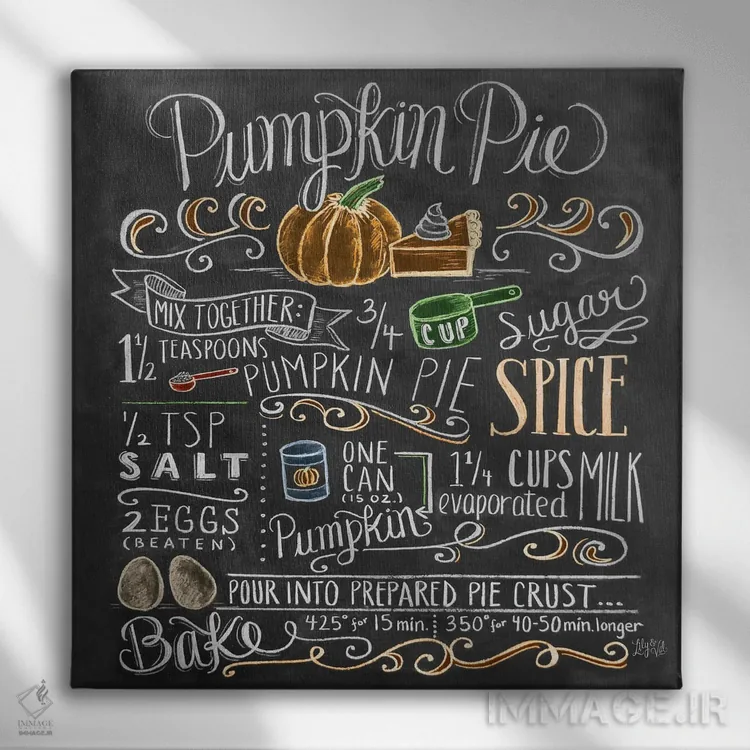 Pumpkin Pie
MIX TOGETHER:
3/4 CUP Sugar
1 1/2 TEASPOONS
PUMPKIN PIE SPICE
1/2 TSP
SALT
2 EGGS
(BEATEN)
ONE
CAN
(15 OZ.)
Pumpkin
1 1/4 CUPS
evaporated
MILK
POUR INTO PREPARED PIE CRUST...
Bake
425° for 15 min.
350° for 40-50 min. longer
Lily & Val
IMMAGE
IMMAGE.IR
IMMAGE.IR